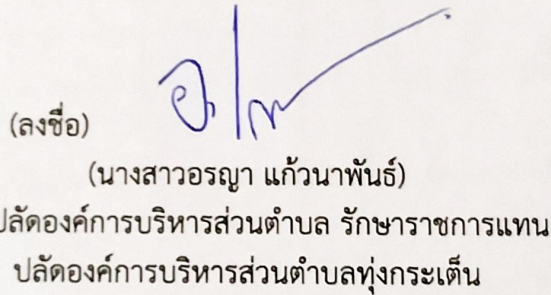 (ลงชื่อ)
(นางสาวอรญา แก้วนาพันธ์)
ปลัดองค์การบริหารส่วนตำบล รักษาราชการแทน
ปลัดองค์การบริหารส่วนตำบลทุ่งกระเต็น